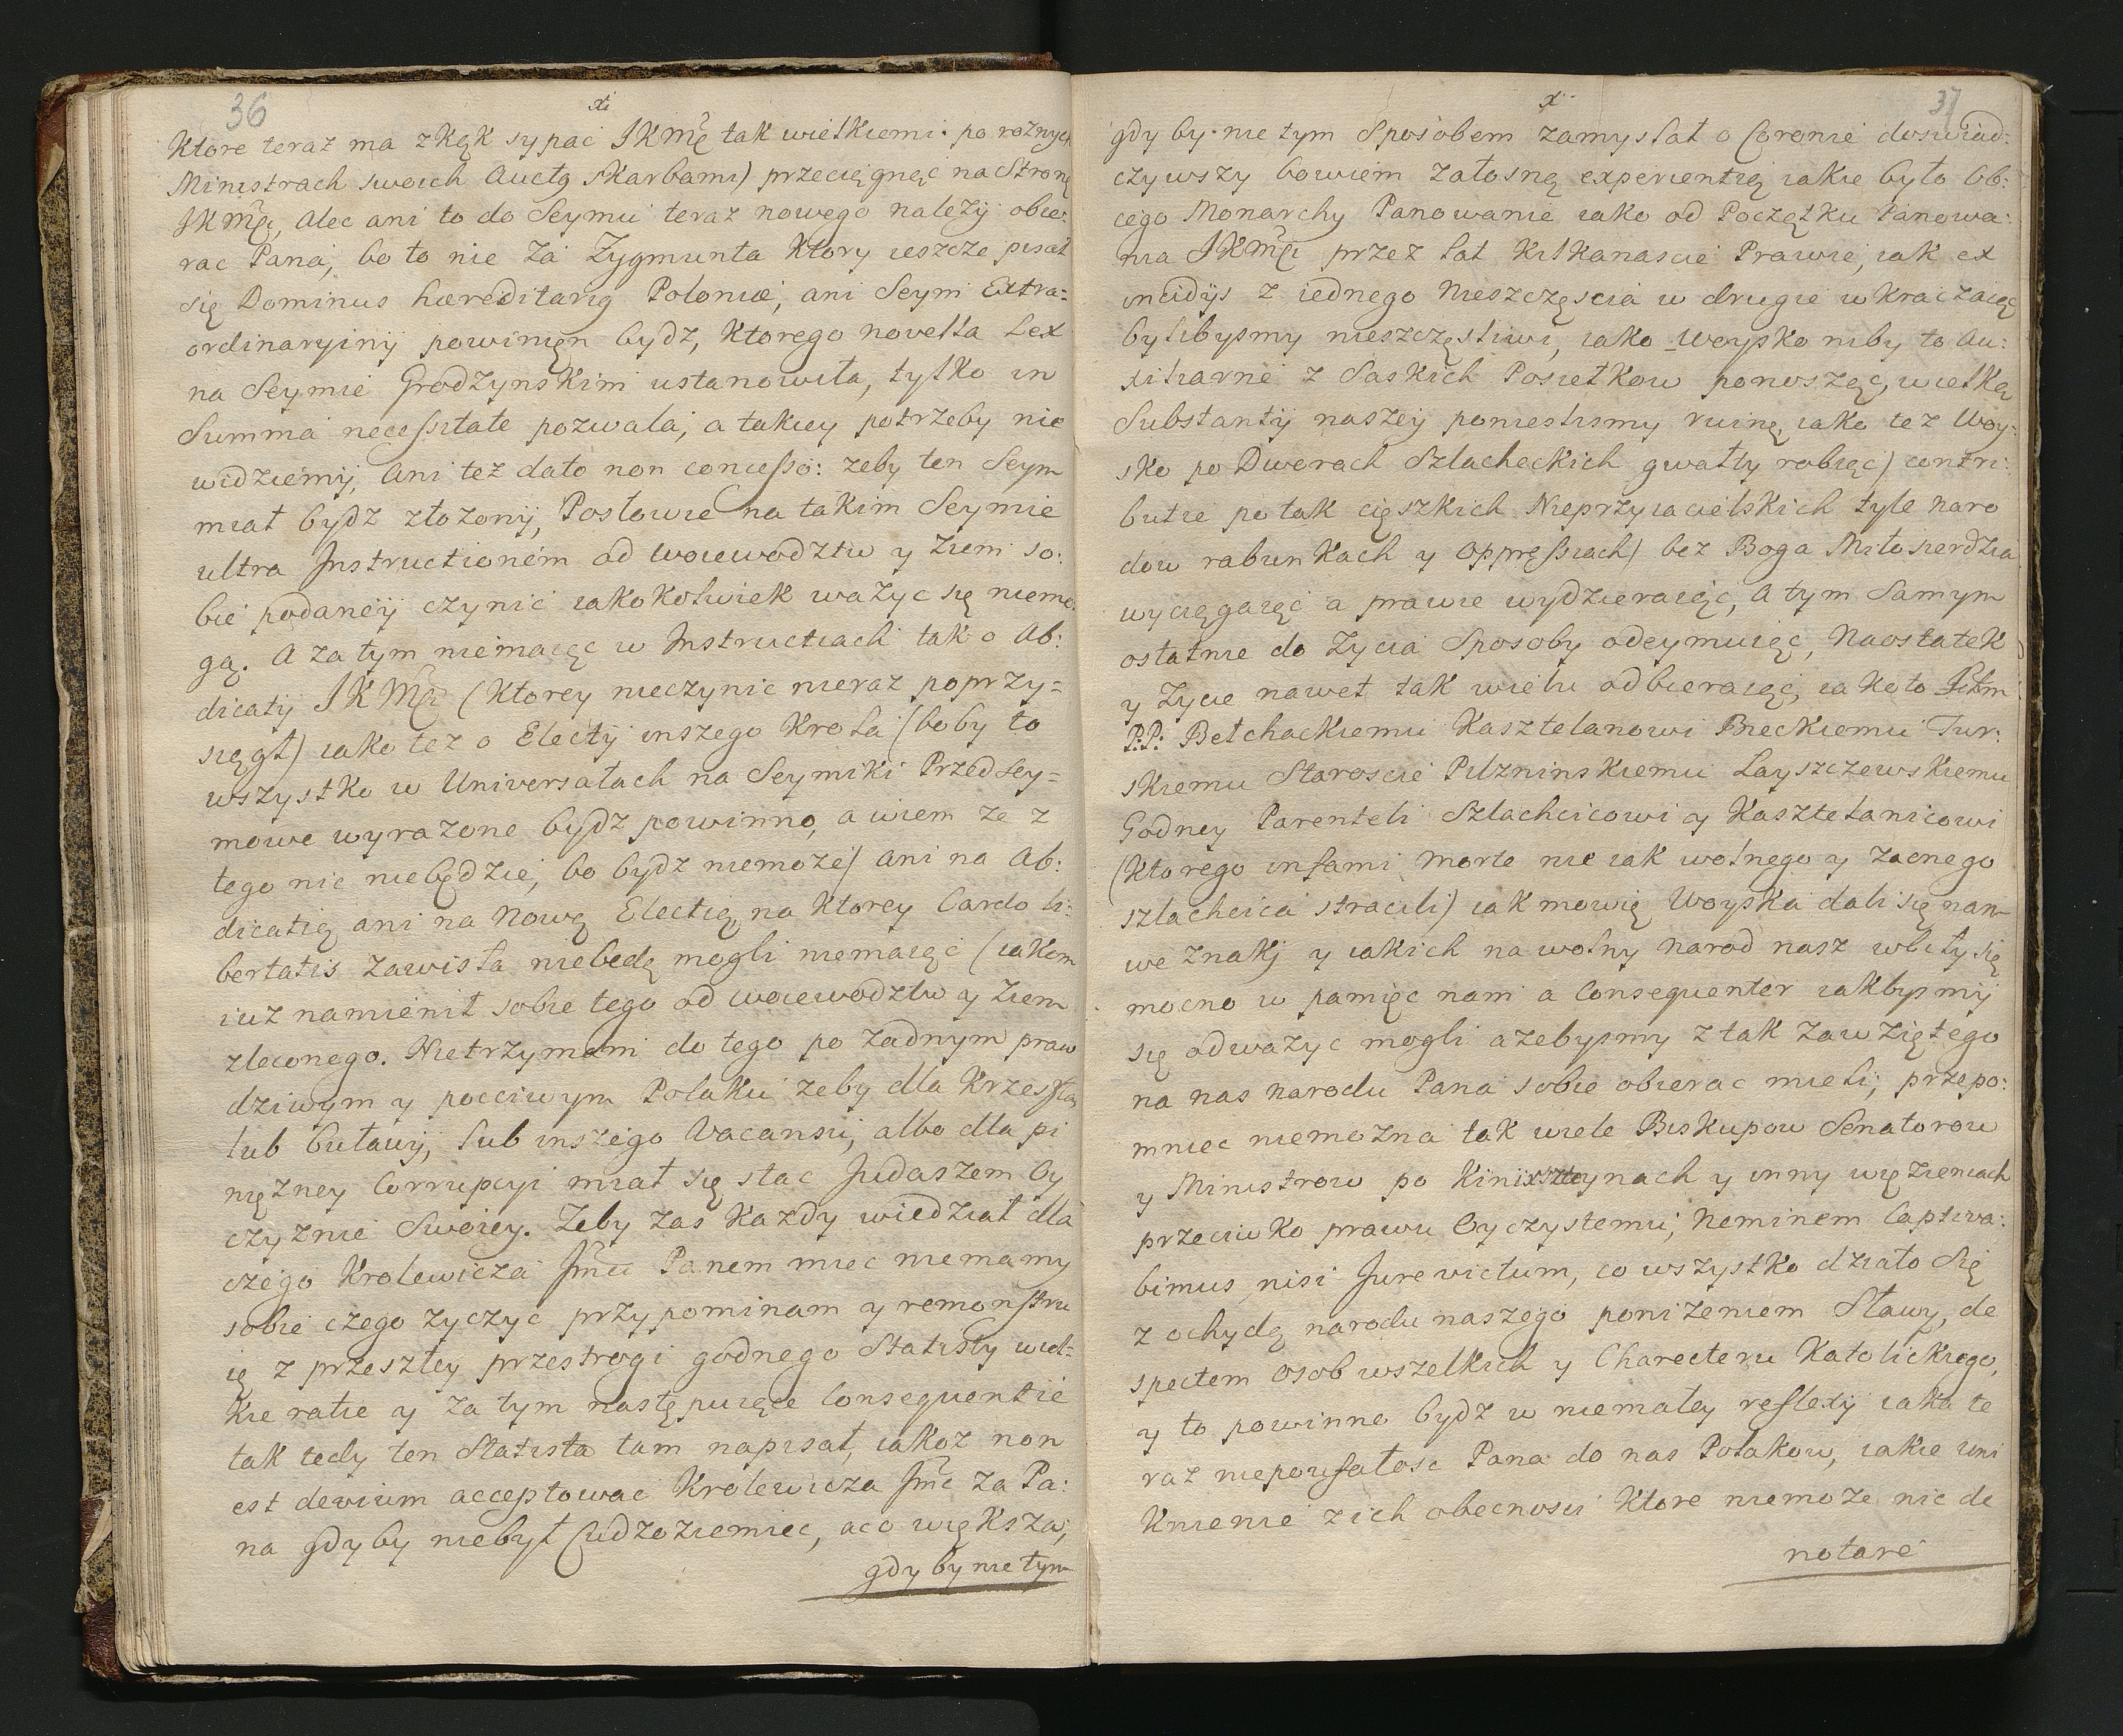 36
xi
Ktore teraz ma zkąk sypac JKMć tak wielkiemi: po roznych
Ministrach swoich Auctg skarbami) przeciągnąć na Stronę
JKMći, Alec ani to do Seymu teraz nowego nalezÿ obie:
rac Pana, bo to nie za Zygmunta Ktory ieszcze pisał
się Dominus hæreditarig Poloniæ, ani Seym Extra=
ordinaryinÿ powinięn bydz, Ktorego novella Lex
na Seymie Grodzynskim ustanowiła, tylko in
Summa neceſsitate pozwala, a takiey potrzeby nie
widziemÿ, Ani tez dato non conceſso: zeby ten Seym
miał bydz złozonÿ, Posłowie na takim Seymie
ultra Instructionem od Woiewodztw y Ziem so:
bie podaneÿ czynić iakokolwiek wazyc się niemo
gą. A zatym niemaiąc w Instructiach tak o Ab:
dicatÿ JKMći (Ktorey nieczynic nieraz poprzy=
siągł) iako tez o Electÿ inszego Krola (bo by to
wszystko w Universałach na Seymiki Przedsey=
mowe wyrazone bydz powinno, a wiem ze z
tego nic niebędzie, bo bydz niemoze) ani na Ab:
dicatią ani na Nową Electią na Ktorey Cardo li:
bertatis zawisła niebedą mogli niemaiąc (iakom
iuz namienił sobie tego od Woiewodztw y Ziem
zleconego. Nietrzymam do tego po zadnym praw
dziwym y pocciwym Polaku zeby dla Krzesſła
lub Buławÿ, lub inszego Vacansu, albo dla pi
nięzney Corrupcyi miał się stac Judaszem Oy
czyznie Swoiey. Zeby zas Kazdy wiedział dla
czego Krolewicza Jmći Panem miec niemamy
sobie czego zyczyc przypominam y remonſtru
ię z przeszłey przestrogi godnego Statisty wiel=
Kie ratie y za tym następuiące Consequentie
tak tedy ten Statista tam napisał, iakoz non
est devium acceptowac Krolewicza Jmć za Pa:
na gdyby niebył Cudzoziemiec, aco większa,
gdy by nie tym
37
x
gdy by nie tym Sposobem zamyslał o Coronie doswiad:
czywszy bowiem załosną experientią iakie było Ob:
cego Monarchy Panowanie iako od Początku Panowa:
nia JKMći przez lat Kilkanascie Prawie, iak ex
incidÿs z iednego Nieszczęscia w drugie wkraczaiąc
bylibysmy nieszczęsliwi, iako Woysko niby to Au:
xiliarne z Saskich Posiełkow ponosząc, wielką
Substantÿ naszeÿ poniesliśmy ruinę, iako tez Woy:
sko po Dworach Szlacheckich gwałty robiąc) contri:
butie po tak cięszkich Nieprzyiacielskich tyle naro
dow rabunkach y Oppreſsiach) bez Boga Miłosierdzia
wyciągaiąc a prawie wydzieraiąc, A tym Samym
ostatnie do zycia Sposoby odeymuiąc, Naostatek
y Zycie nawet tak wielu odbieraiąc, iako to
P:P: Bełchackiemu Kasztelanowi Bieckiemu Tur:
skiemu Staroscie Pilzninskiemu Łayszczewskiemu
Godney Parenteli Szlachcicowi y Kasztelanicowi
(Ktorego infami morte nie iak wolnego y zacnego
szlachcica stracili) iak mowię Woyska dali się nam
we znakj y iakich na wolny narod nasz wbiły się
mocno w pamięc nam a Consequenter iakbysmÿ
się odwazyc mogli azebysmy z tak zawziętego
na nas narodu Pana sobie obierac mieli, przepo:
mniec niemozna tak wiele Biskupow Senatorow
y Ministrow po y inny więzieniach
przeciwko prawu Oyczystemu, Neminem Captiva:
bimus nisi Jure victum, co wszystko działo Się
z ochydą narodu naszego ponizeniem Sławy, de
spectem osob wszelkich y Charecteru Katolickiego,
y to powinno bydz w niemałey reflexÿ iaka te
raz niepoufałosc Pana do nas Polakow, iakie uni
Knienie z ich obecnosci Ktore niemoze nic de
notare